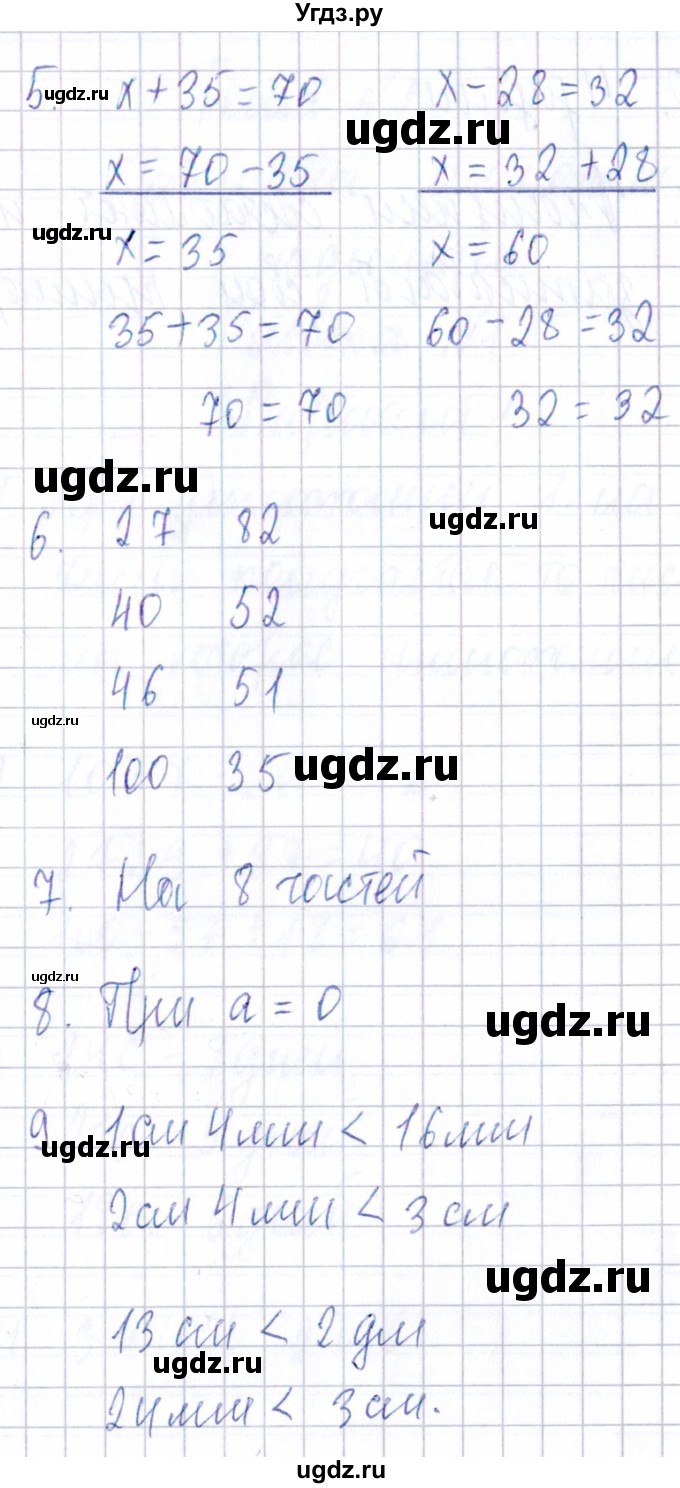 Угдз.ру
5. x + 35 = 70    x - 28 = 32
x = 70 - 35    x = 32 + 28
x = 35    x = 60
35 + 35 = 70    60 - 28 = 32
70 = 70    32 = 32
6. 27    82
40    52
46    51
100    35
7. На 8 частей
8. При a = 0
9. 1 см 4 мм < 16 мм
2 см 4 мм < 3 см
13 см < 2 дм
24 мм < 3 см.
ugdz.ru
ugdz.ru
ugdz.ru
ugdz.ru
ugdz.ru
ugdz.ru
ugdz.ru
ugdz.ru
ugdz.ru
ugdz.ru
ugdz.ru
ugdz.ru
ugdz.ru